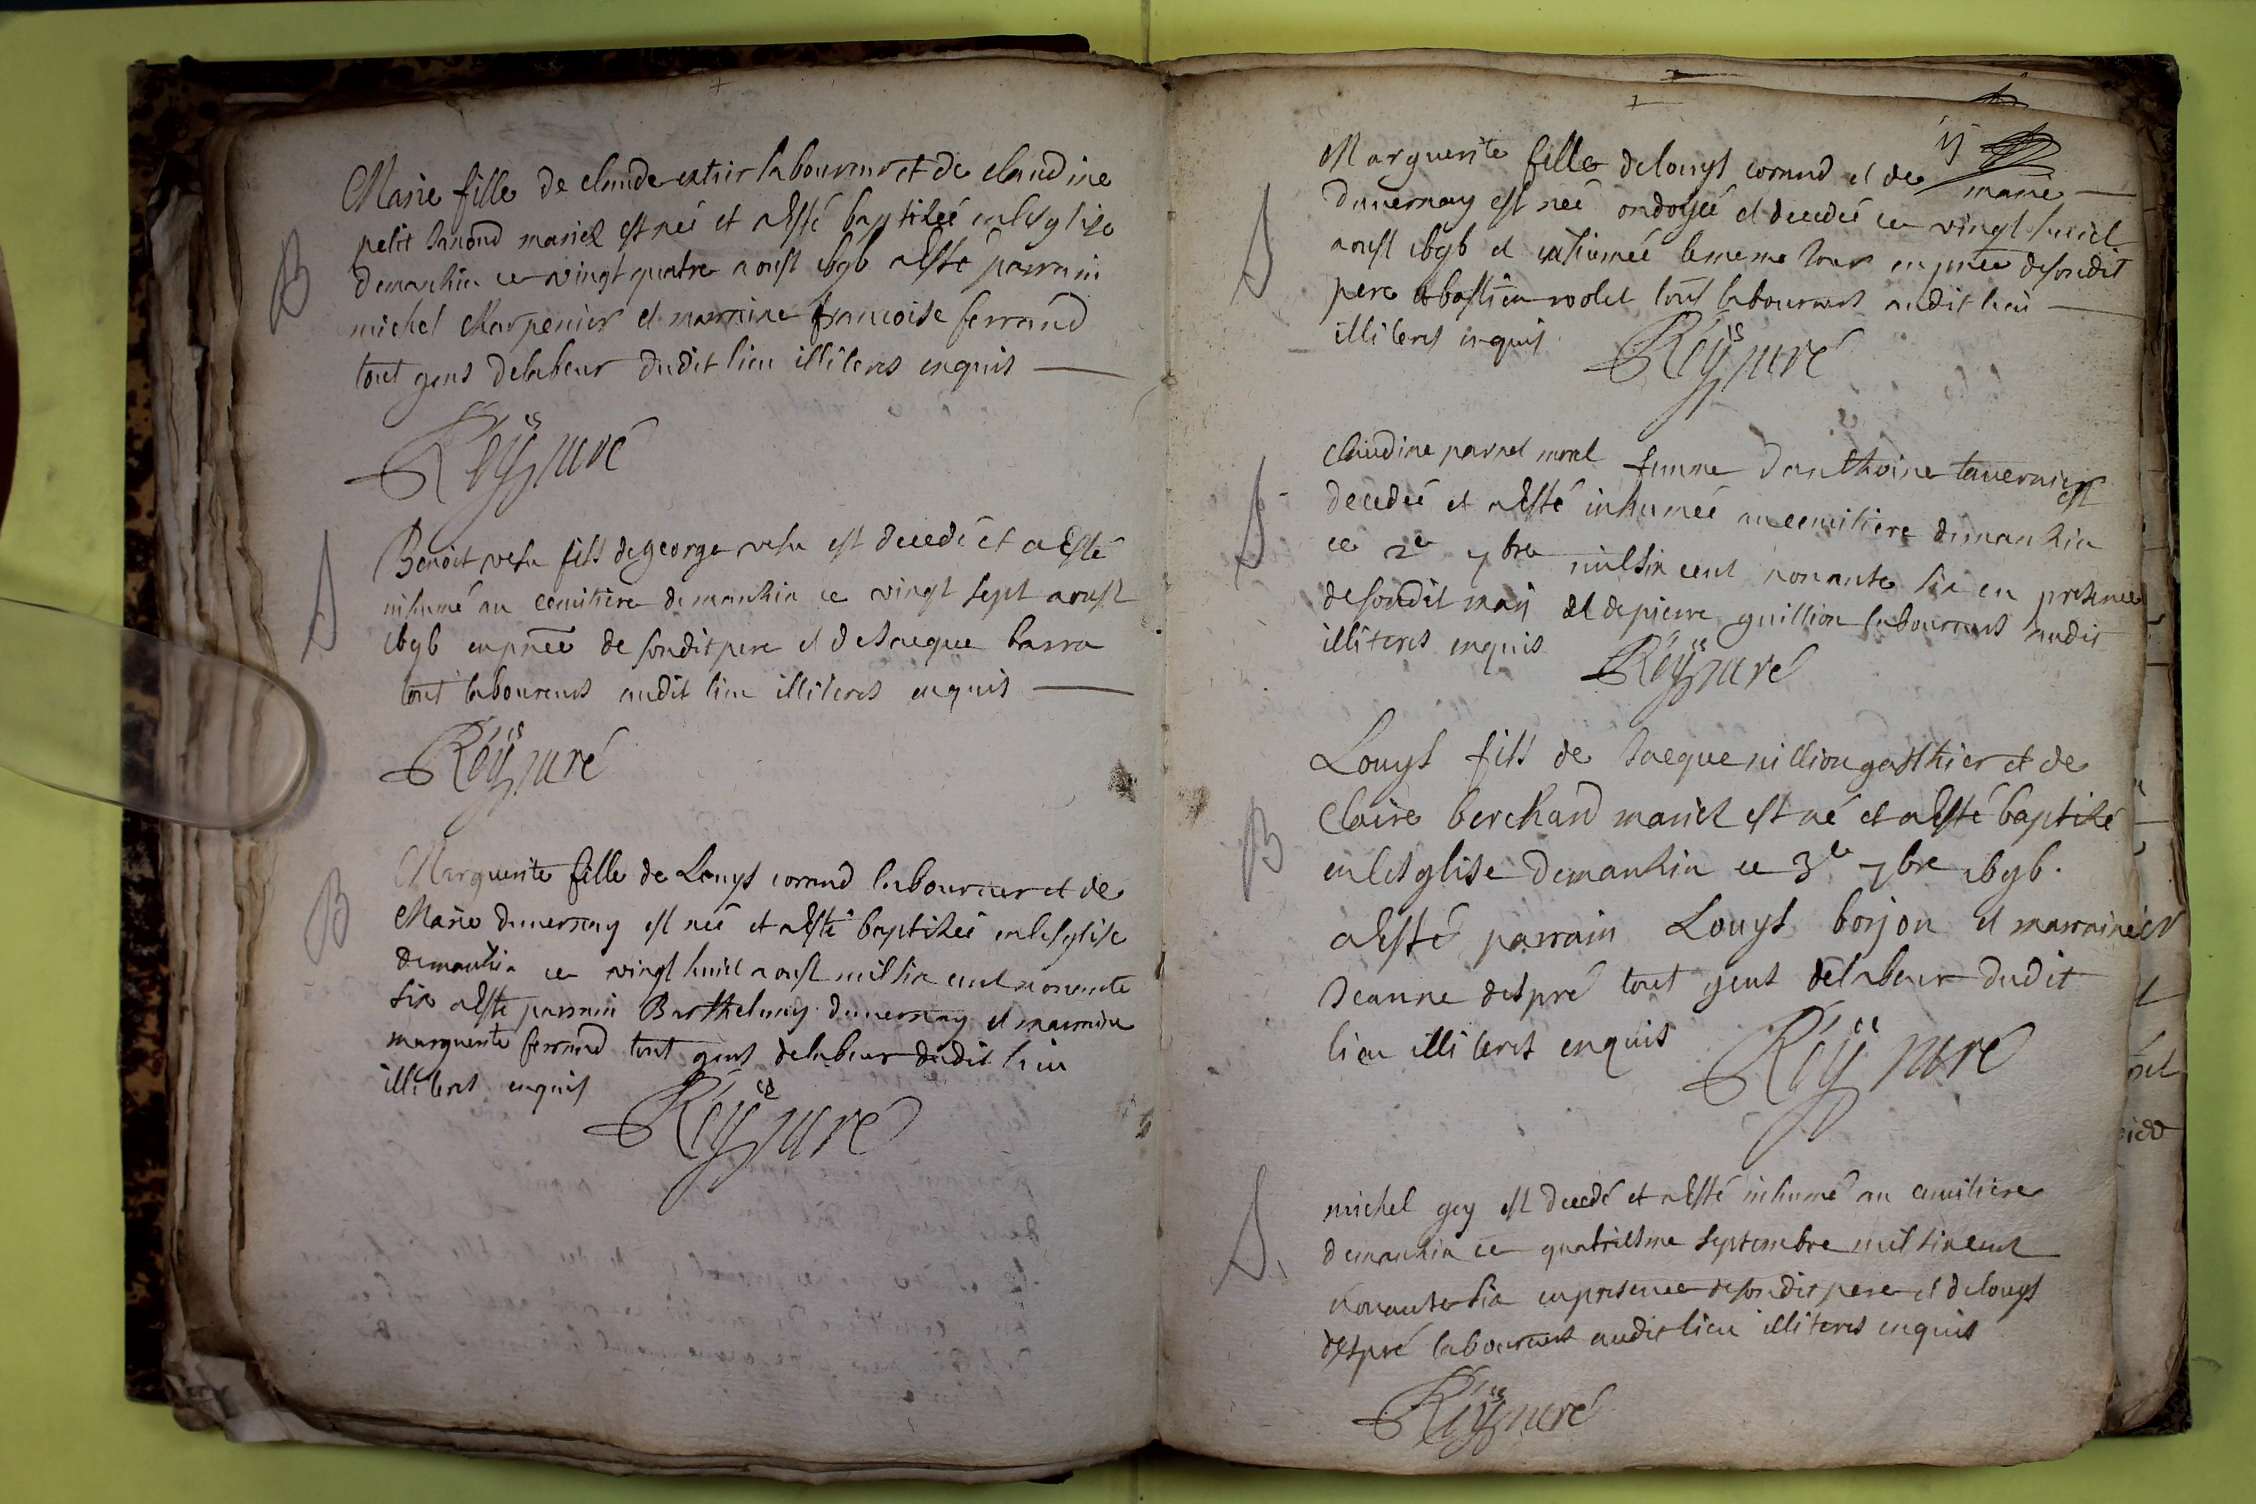 Marie fille de claude laboureur et de claudine
petit Janond mariez est neé et aesté baptiseé en lesglise
demanhin ce vingt quatre aoust ibgb aesté parrain
michel charpenier et marraine francoise ferrand
tout gens delabeur dudit lieu illiteres enquis
B
Reÿ curé
Benoit vesu fils de george vesu est decedé et aesté
inhumé au cemitiere demanhin ce vingt sept aoust
ibgb en pnce de sondit pere et de Jacque barra
tout laboureurs audit lieu illiteres enquis
S
Reÿ curé
Marguerite fille de Louys corand laboureur et de
Marie duvernay est neé et aesté baptiseé en lesglise
demanhin ce vingt huict aoust mil six cent nonante
six aesté parrain Barthelemy duvernay et marraine
marguerite ferrand tout gens delabeur dudit lieu
illiteres enquis
B
Reÿ curé
Marguerite fille de louys corand et de marie
duvernay est neé ondoyeé et decedeé ce vingt huict
aoust ibgb et enterreé le meme Jour en pnce de sondit
pere et bastien volet tous laboureurs audit lieu
illiteres enquis
S
Reÿ curé
claudine parnel morel femme danthoine tavernier est
decedeé et aesté inhumeé au cemitiere demanhin
ce 2e 7bre mil six cent nonante six en presence
de sondit mary et de pierre guillion laboureurs audit
illiteres enquis
S
Reÿ curé
Louys fils de Jacque nillion gasthier et de
Claire berchand mariez est né et aesté baptisé
en lesglise demanhin ce 3e 7bre ibgb.
aesté parrain Louys borjon et marraine
Jeanne despré tout gens delabeur dudit
lieu illiteres enquis
B
Reÿ curé
michel gey est decedé et aesté inhumé au cemitiere
demanhin ce quatriesme septembre mil six cent
nonante six en presence de sondit pere et de louys
despré laboureurs audit lieu illiteres enquis
S
Reÿ curé